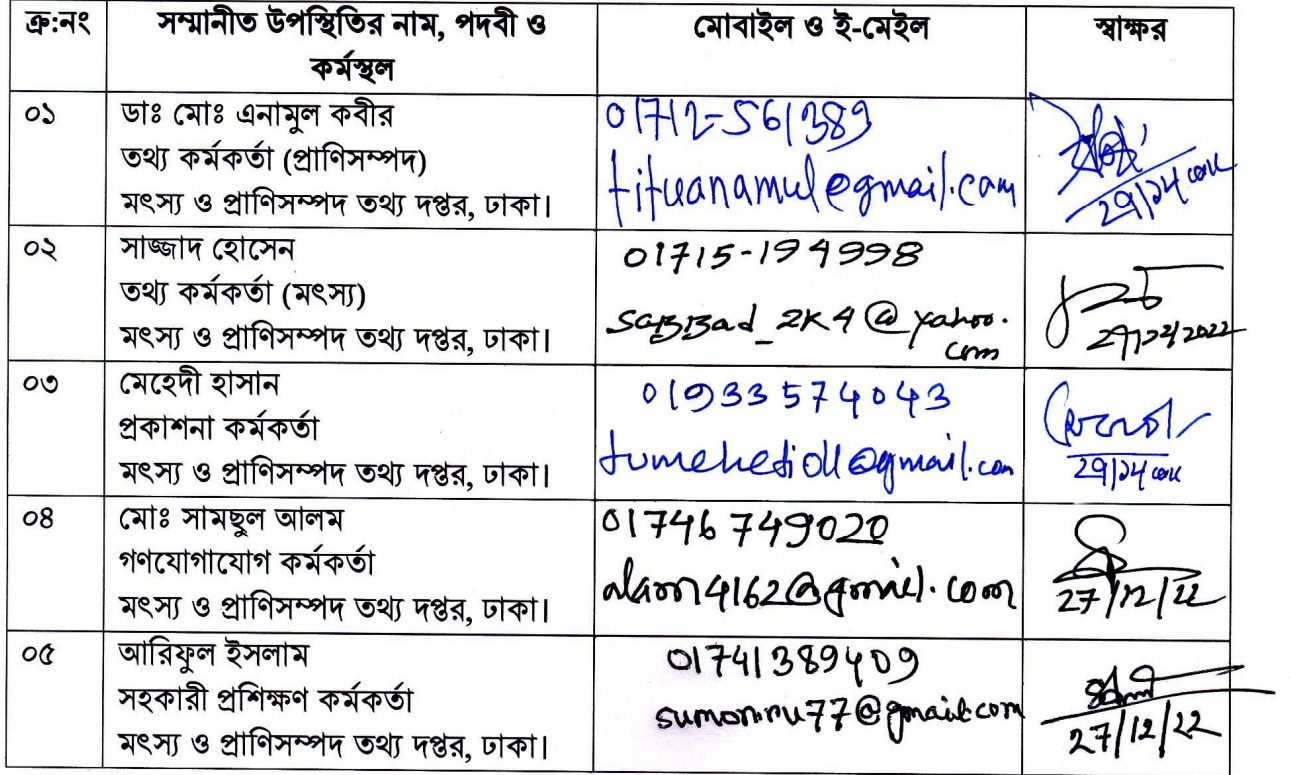 ক্র:নং
সম্মানীত উপস্থিতির নাম, পদবী ও
কর্মস্থল
মোবাইল ও ই-মেইল
স্বাক্ষর
০১
ডাঃ মোঃ এনামুল কবীর
তথ্য কর্মকর্তা (প্রাণিসম্পদ)
মৎস্য ও প্রাণিসম্পদ তথ্য দপ্তর, ঢাকা।
01712-561389
tituanamul@gmail.com
০২
সাজ্জাদ হোসেন
তথ্য কর্মকর্তা (মৎস্য)
মৎস্য ও প্রাণিসম্পদ তথ্য দপ্তর, ঢাকা।
01715-194998
_2k4@yahoo.
com
০৩
মেহেদী হাসান
প্রকাশনা কর্মকর্তা
মৎস্য ও প্রাণিসম্পদ তথ্য দপ্তর, ঢাকা।
01933574043
০৪
মোঃ সামছুল আলম
গণযোগাযোগ কর্মকর্তা
মৎস্য ও প্রাণিসম্পদ তথ্য দপ্তর, ঢাকা।
01746749020
alam4162@gmail.com
27/12/22
০৫
আরিফুল ইসলাম
সহকারী প্রশিক্ষণ কর্মকর্তা
মৎস্য ও প্রাণিসম্পদ তথ্য দপ্তর, ঢাকা।
01741389409
sumonru77@gmail.com
27/12/22